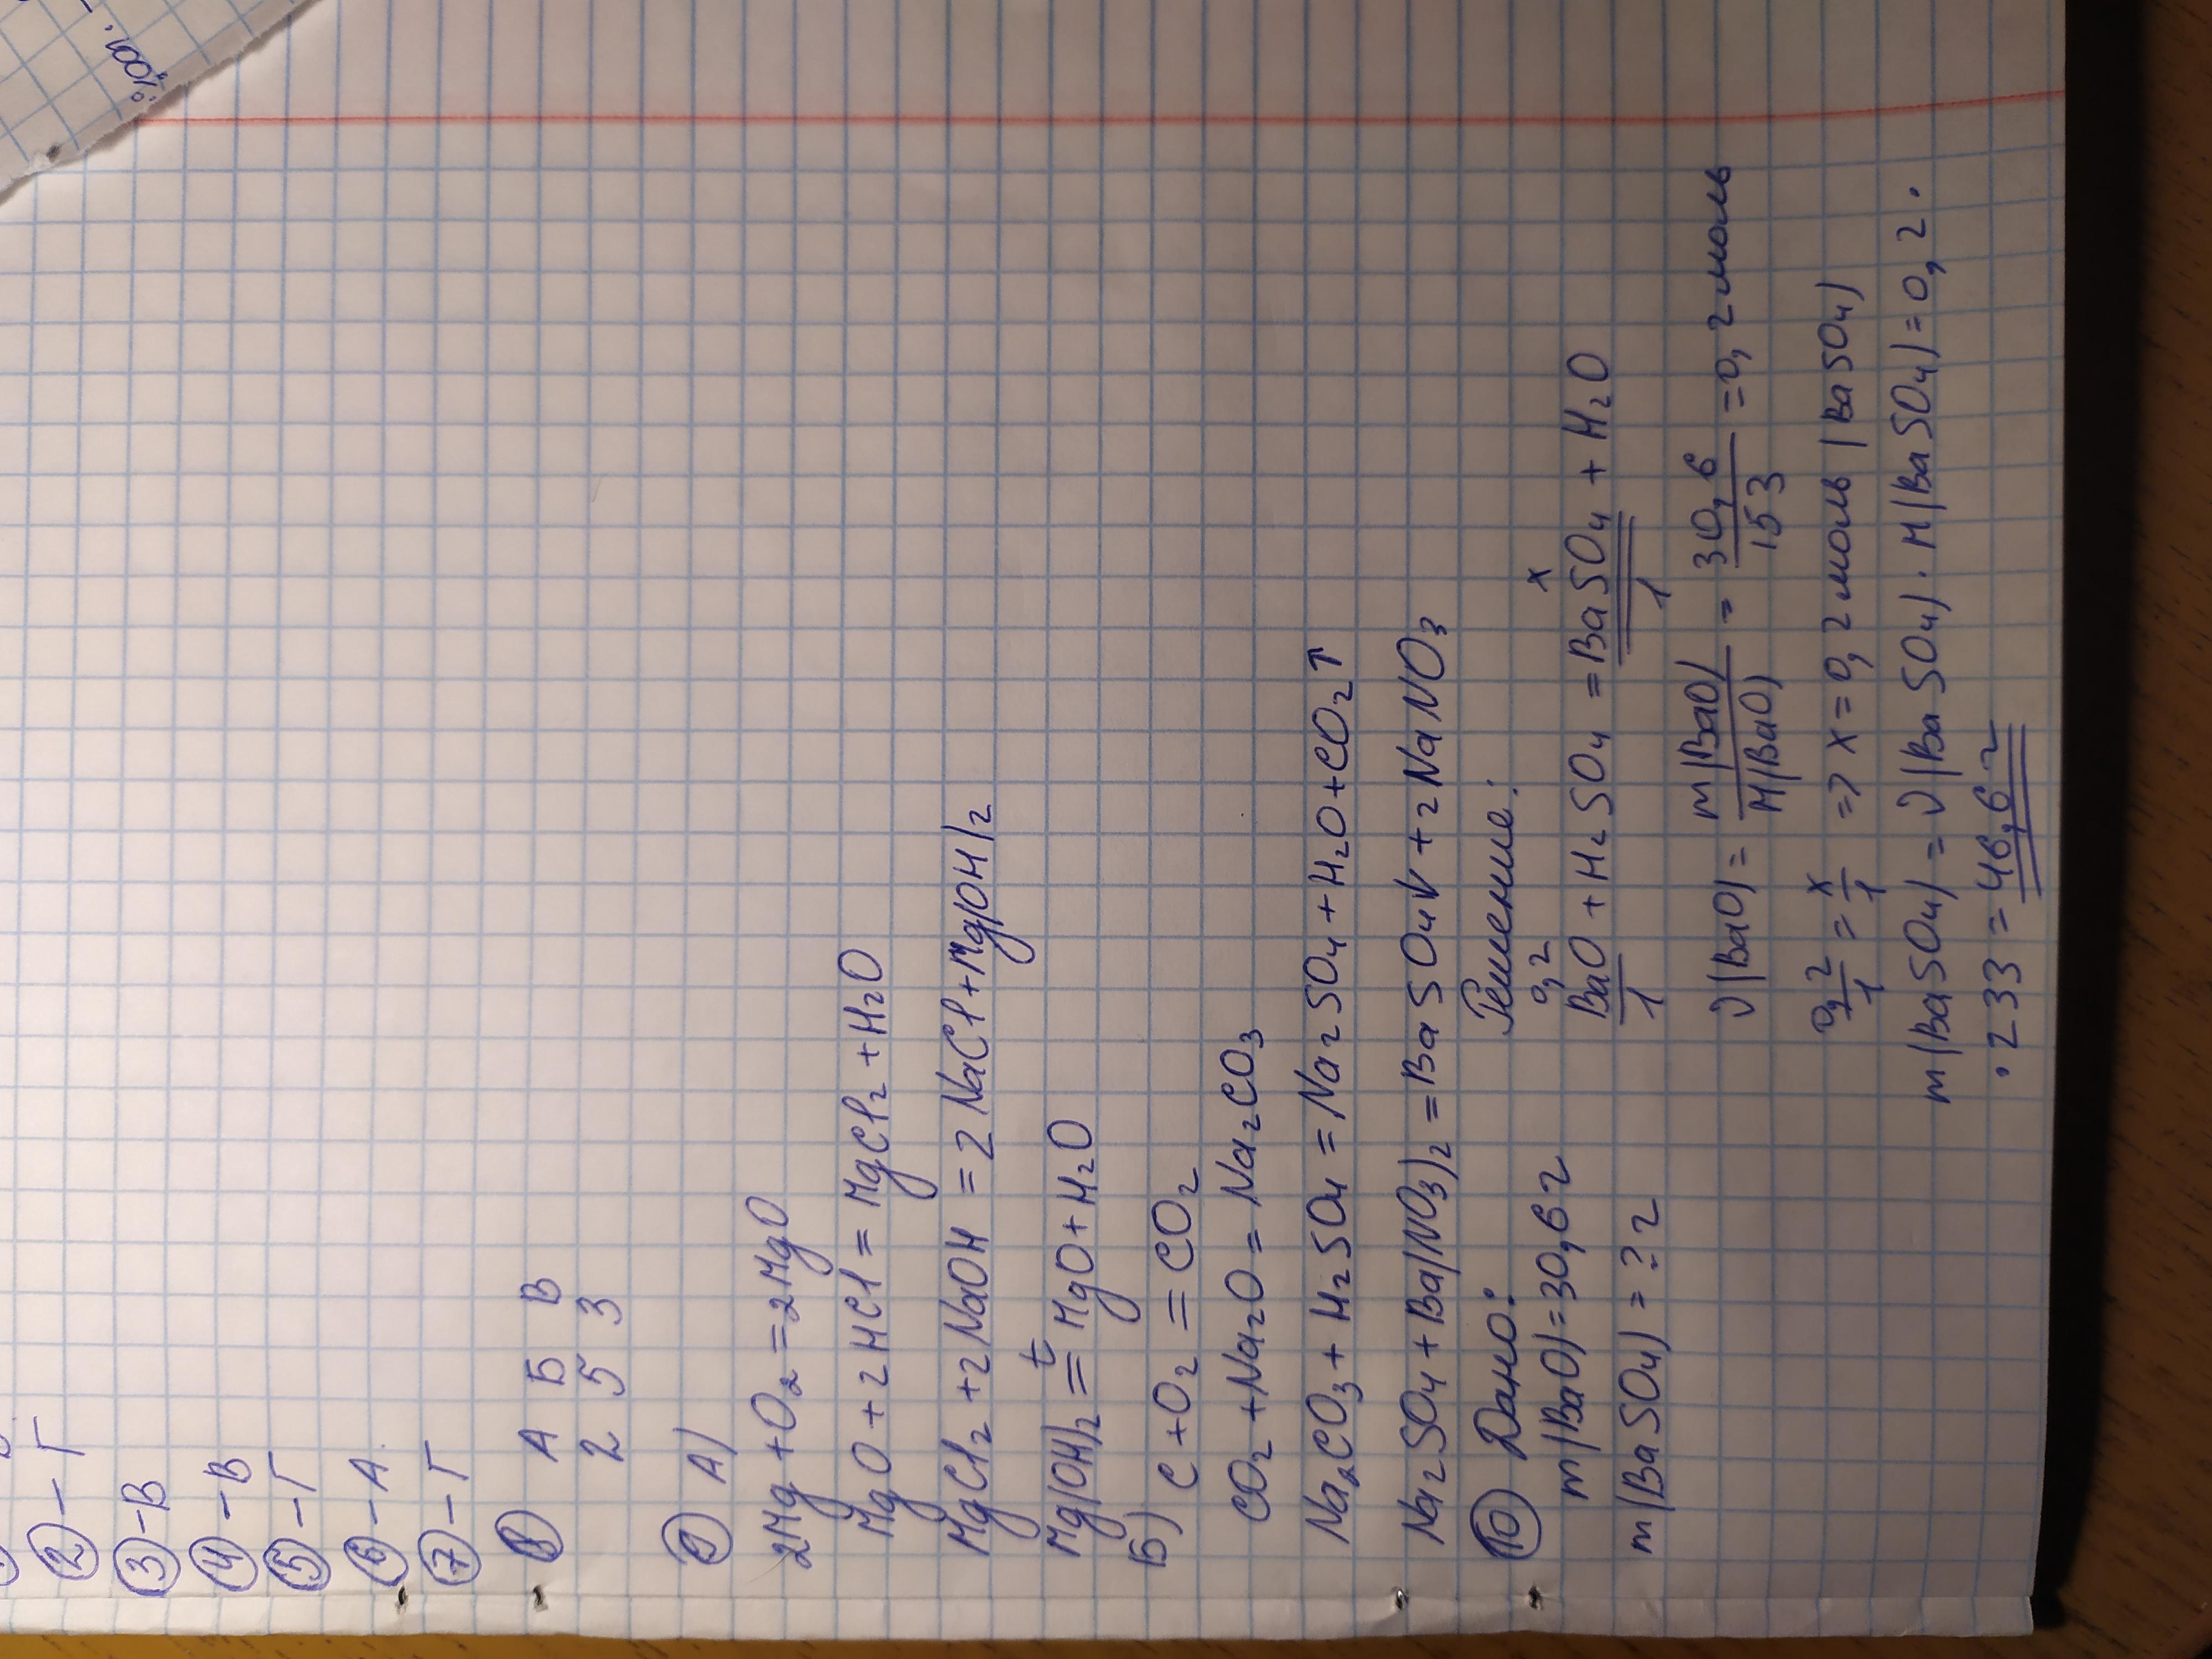 %оол.
② – Г
③ – В
④ – В
⑤ – Г
⑥ – А
⑦ – Г
⑧ А Б В
2 5 3
⑨ А)
2Mg + O₂ = 2MgO
MgO + 2HCl = MgCl₂ + H₂O
MgCl₂ + 2NaOH = 2NaCl + Mg(OH)₂
Mg(OH)₂ =ᵗ MgO + H₂O
Б) C + O₂ = CO₂
CO₂ + Na₂O = Na₂CO₃
Na₂CO₃ + H₂SO₄ = Na₂SO₄ + H₂O + CO₂↑
Na₂SO₄ + Ba(NO₃)₂ = BaSO₄↓ + 2NaNO₃
⑩ Дано:
m(BaO) = 30,6 г
m(BaSO₄) = ? г
Решение:
0,2 x
BaO + H₂SO₄ = BaSO₄ + H₂O
1 1
ν(BaO) = m(BaO)/M(BaO) = 30,6/153 = 0,2 моль
0,2/1 = x/1 => x = 0,2 моль (BaSO₄)
m(BaSO₄) = ν(BaSO₄) · M(BaSO₄) = 0,2 ·
· 233 = 46,6 г